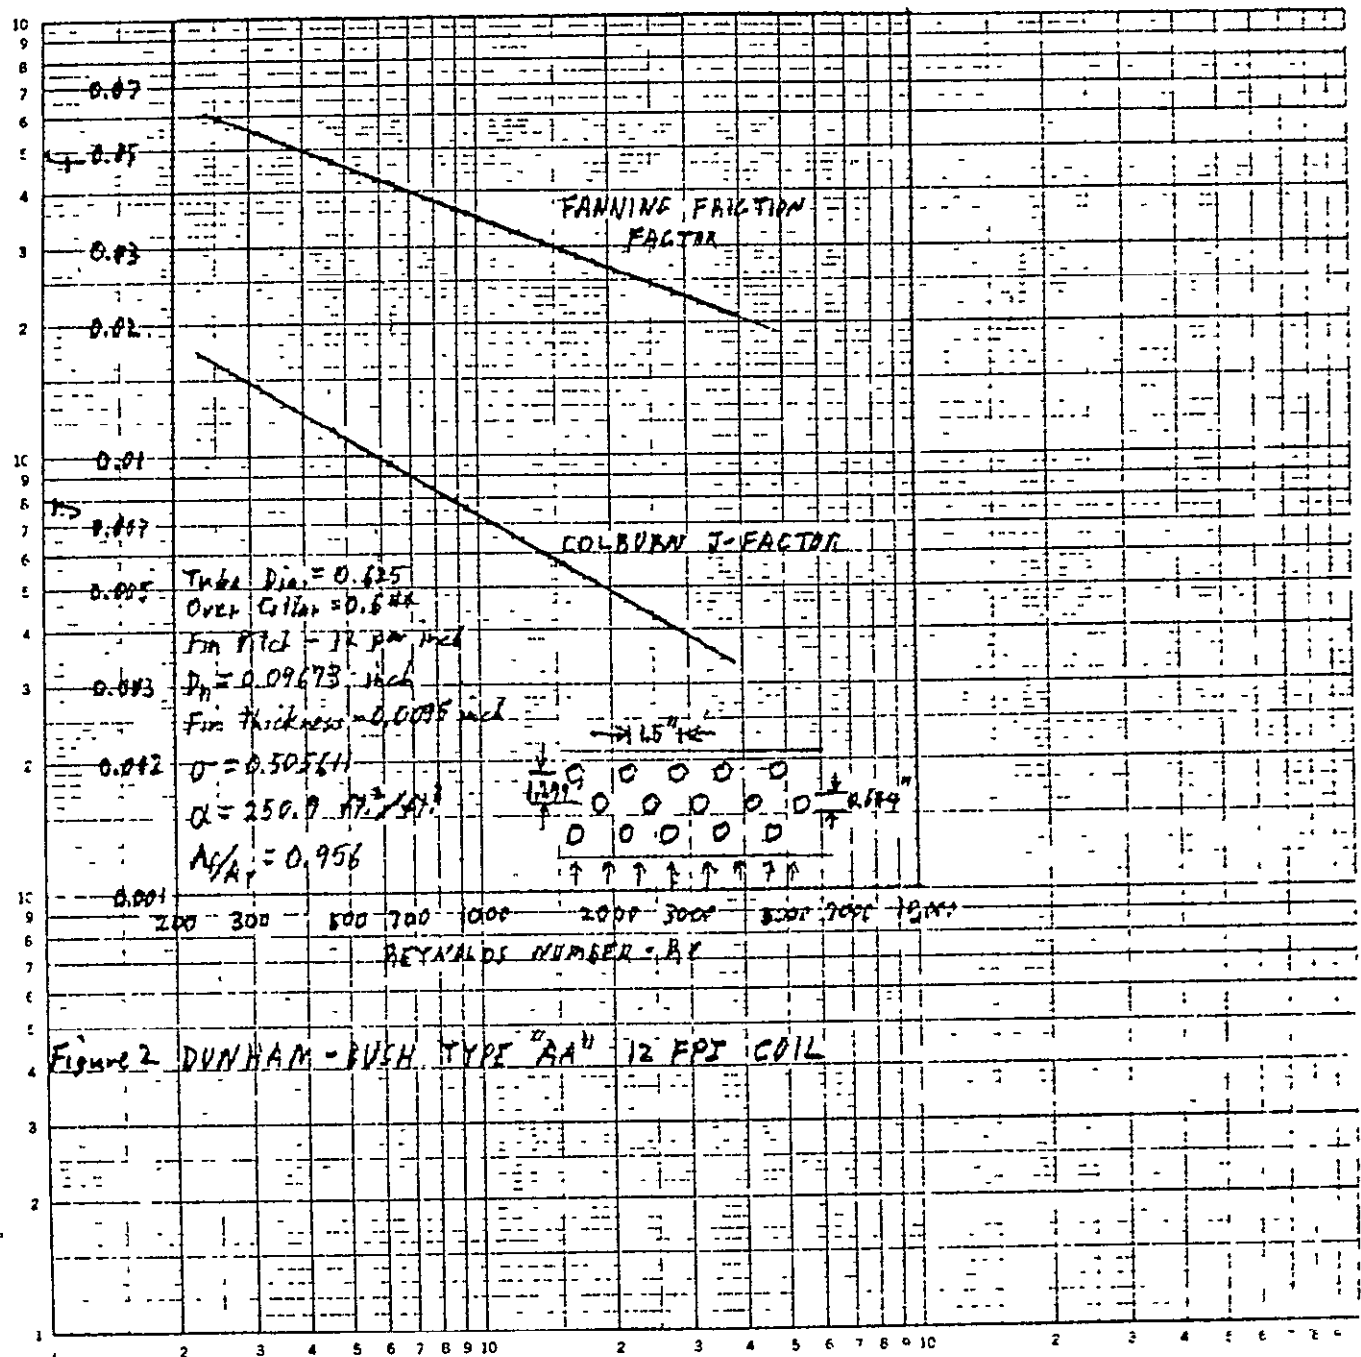 10
9
8
7
6
5
4
3
2
10
9
8
7
6
5
4
3
2
10
9
8
7
6
5
4
3
2
1
0.07
f 0.05
0.03
0.02
0.01
J
0.007
0.005
0.003
0.002
0.001
FANNING FRICTION
FACTOR
COLBURN J-FACTOR
Tube Dia. = 0.625
Over Collar =
Fin Pitch - 12 per inch
Dh = 0.09673 inch
Fin thickness = 0.0095 inch
σ = 0.505611
α = 250.0 ft.²/ft.³
Af/AT = 0.956
1.5"
1.299"
200 300 500 700 1000 2000 3000 5000 7000
REYNOLDS NUMBER -
Figure 2 DUNHAM-BUSH TYPE "AA" 12 FPI COIL
2 3 4 5 6 7 8 9 10 2 3 4 5 6 7 8 9 10 2 3 4 5